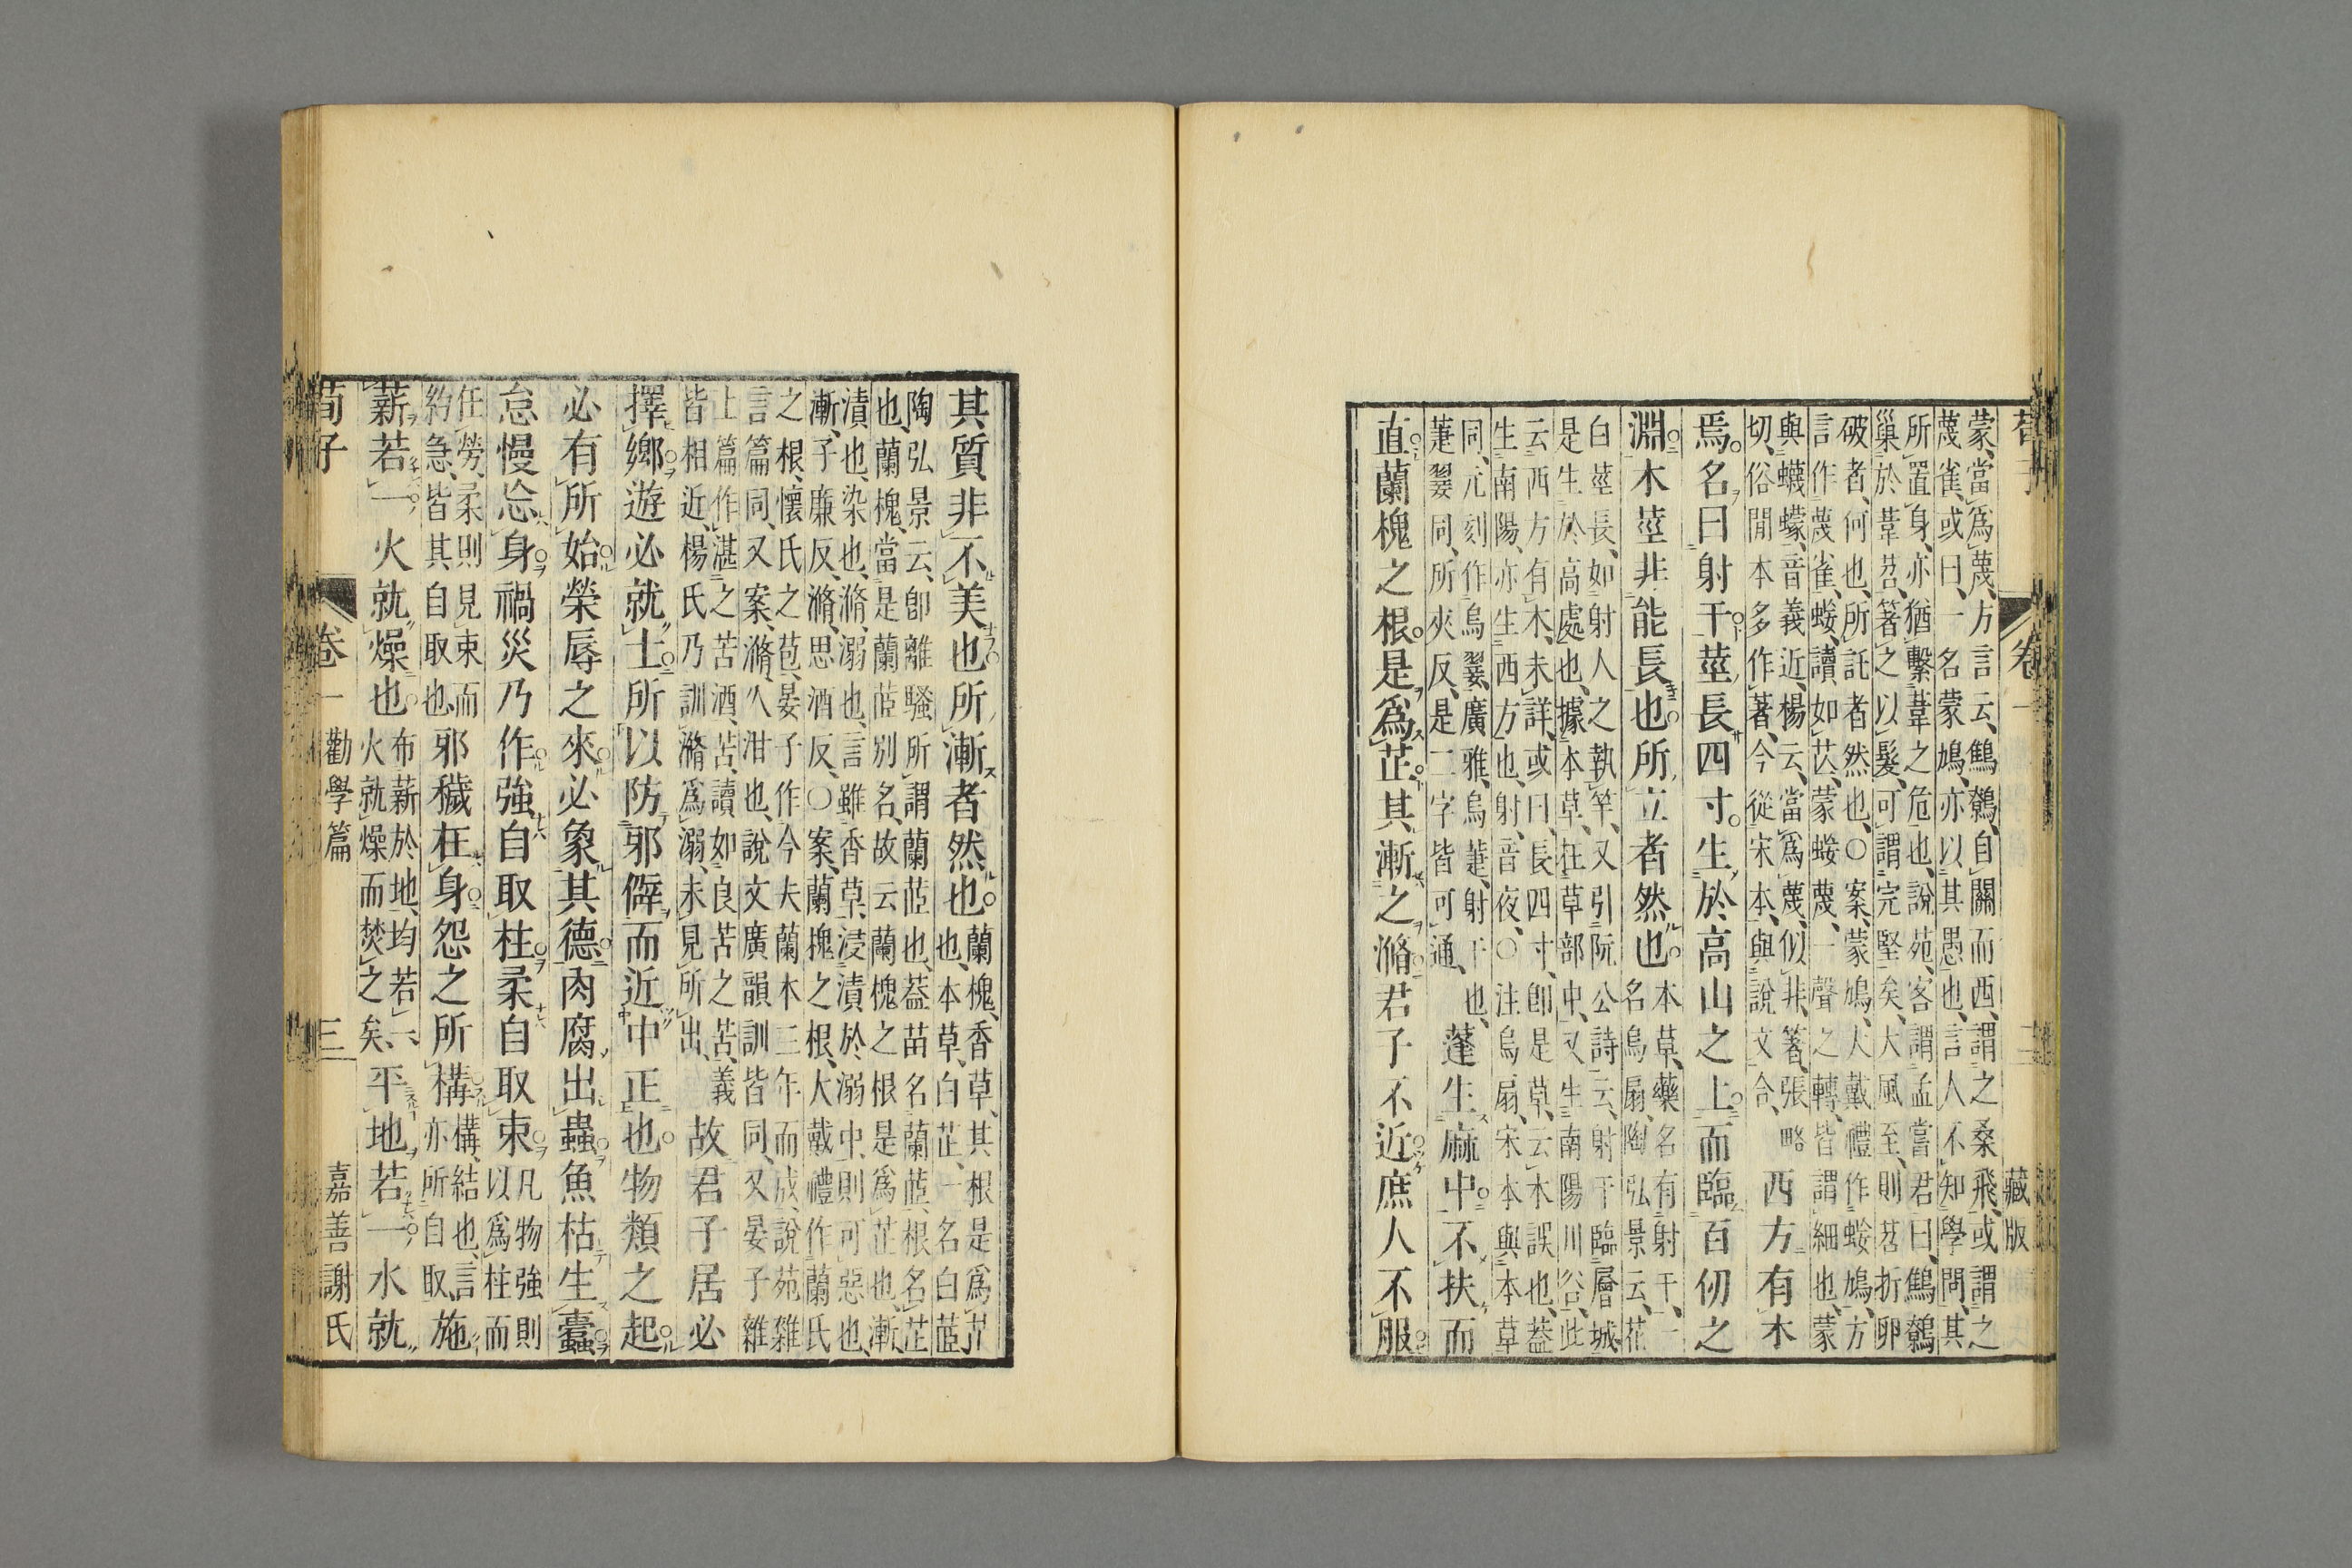 荀子 卷一 二 藏版
蒙、當爲蔑、方言云、鷦鷯、自關而西、謂之桑飛、或謂之
蔑雀、或曰、一名蒙鳩、亦以其愚也、言人不知學問、其
所置身、亦猶繫葦之危也、說苑、客謂孟嘗君曰、鷦鷯
巢於葦苕、箸之以髮、可謂完堅矣、大風至、則苕折卵
破者、何也、所託者然也、〇案、蒙鳩、大戴禮作䖥鳩、方
言作蔑雀、䖥讀如芒、蒙䖥蔑、一聲之轉、皆謂細也、蒙
與蠛蠓、音義近、楊云、當爲蔑、似非、箸、張略
切、俗閒本多作著、今從宋本、與說文合、
西方有木
焉名曰射干莖長四寸生於高山之上而臨百仞之
淵木莖非能長也所立者然也
本草、藥名有射干、一
名烏扇、陶弘景云、花
白莖長、如射人之執竿、又引阮公詩云、射干臨層城、
是生於高處也、據本草、在草部中、又生南陽川谷、此
云西方有木、未詳、或曰、長四寸、卽是草、云木誤也、蓋
生南陽、亦生西方也、射音夜、〇注烏扇、宋本與本草
同、元刻作烏翣、廣雅、烏萐、射干也、
萐翣同、所夾反、是二字皆可通、
蓬生麻中不扶而
直蘭槐之根是爲芷其漸之滫君子不近庶人不服
其質非不美也所漸者然也
蘭槐、香草、其根是爲芷
也、本草、白芷、一名白茝
陶弘景云、卽離騷所謂蘭茝也、蓋苗名蘭茝、根名芷
也、蘭槐、當是蘭茝別名、故云蘭槐之根是爲芷也、漸、
漬也、染也、滫、溺也、言雖香草、浸漬於溺中、則可惡也、
漸、子廉反、滫、思酒反、〇案、蘭槐之根、大戴禮作蘭氏
之根、懷氏之苞、晏子作今夫蘭本三年而成、說苑雜
言篇同、又案、滫、久泔也、說文廣韻訓皆同、又晏子雜
上篇作湛之苦酒、苦、讀如良苦之苦、義
皆相近、楊氏乃訓滫爲溺、未見所出、
故君子居必
擇鄉遊必就士所以防邪僻而近中正也物類之起
必有所始榮辱之來必象其德肉腐出蟲魚枯生蠹
怠慢忘身禍災乃作強自取柱柔自取束
凡物強則
以爲柱而
任勞、柔則見束而
約急、皆其自取也
邪穢在身怨之所構
構、結也、言
亦所自取、
施
薪若一火就燥也
布薪於地、均若一、
火就燥而焚之矣、
平地若一水就
荀子 卷一 勸學篇 三 嘉善謝氏